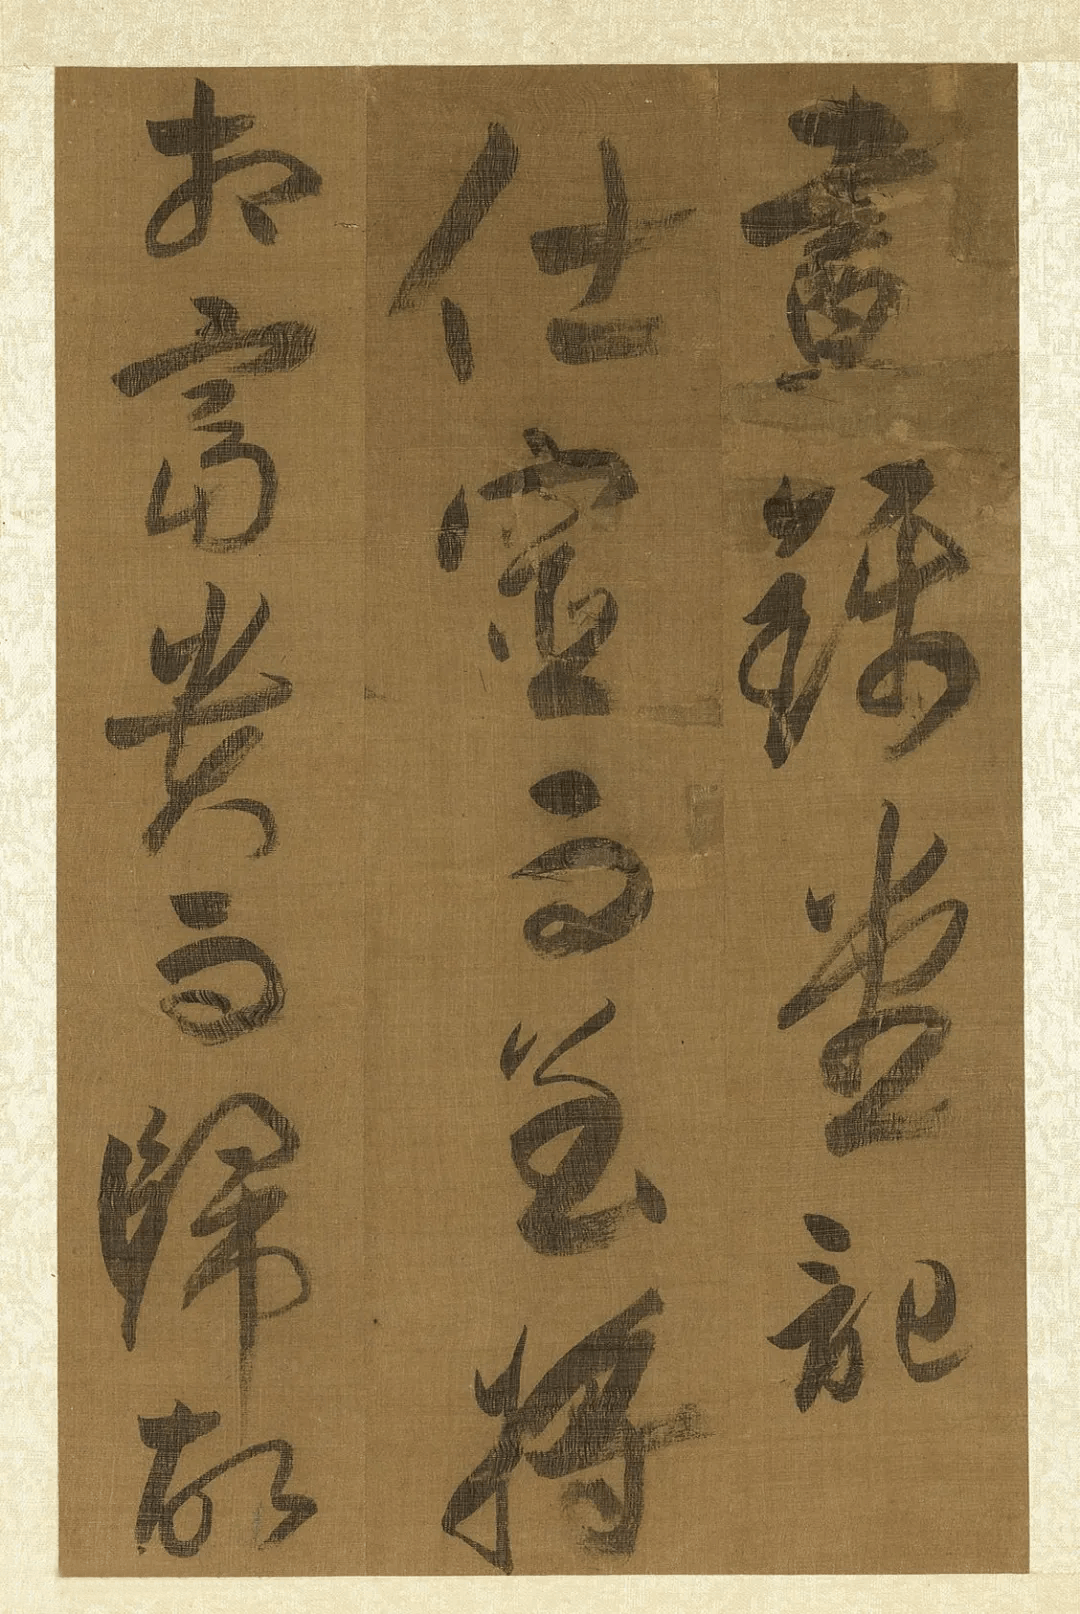 晝錦堂記
仕宦而至將
相富貴而歸故